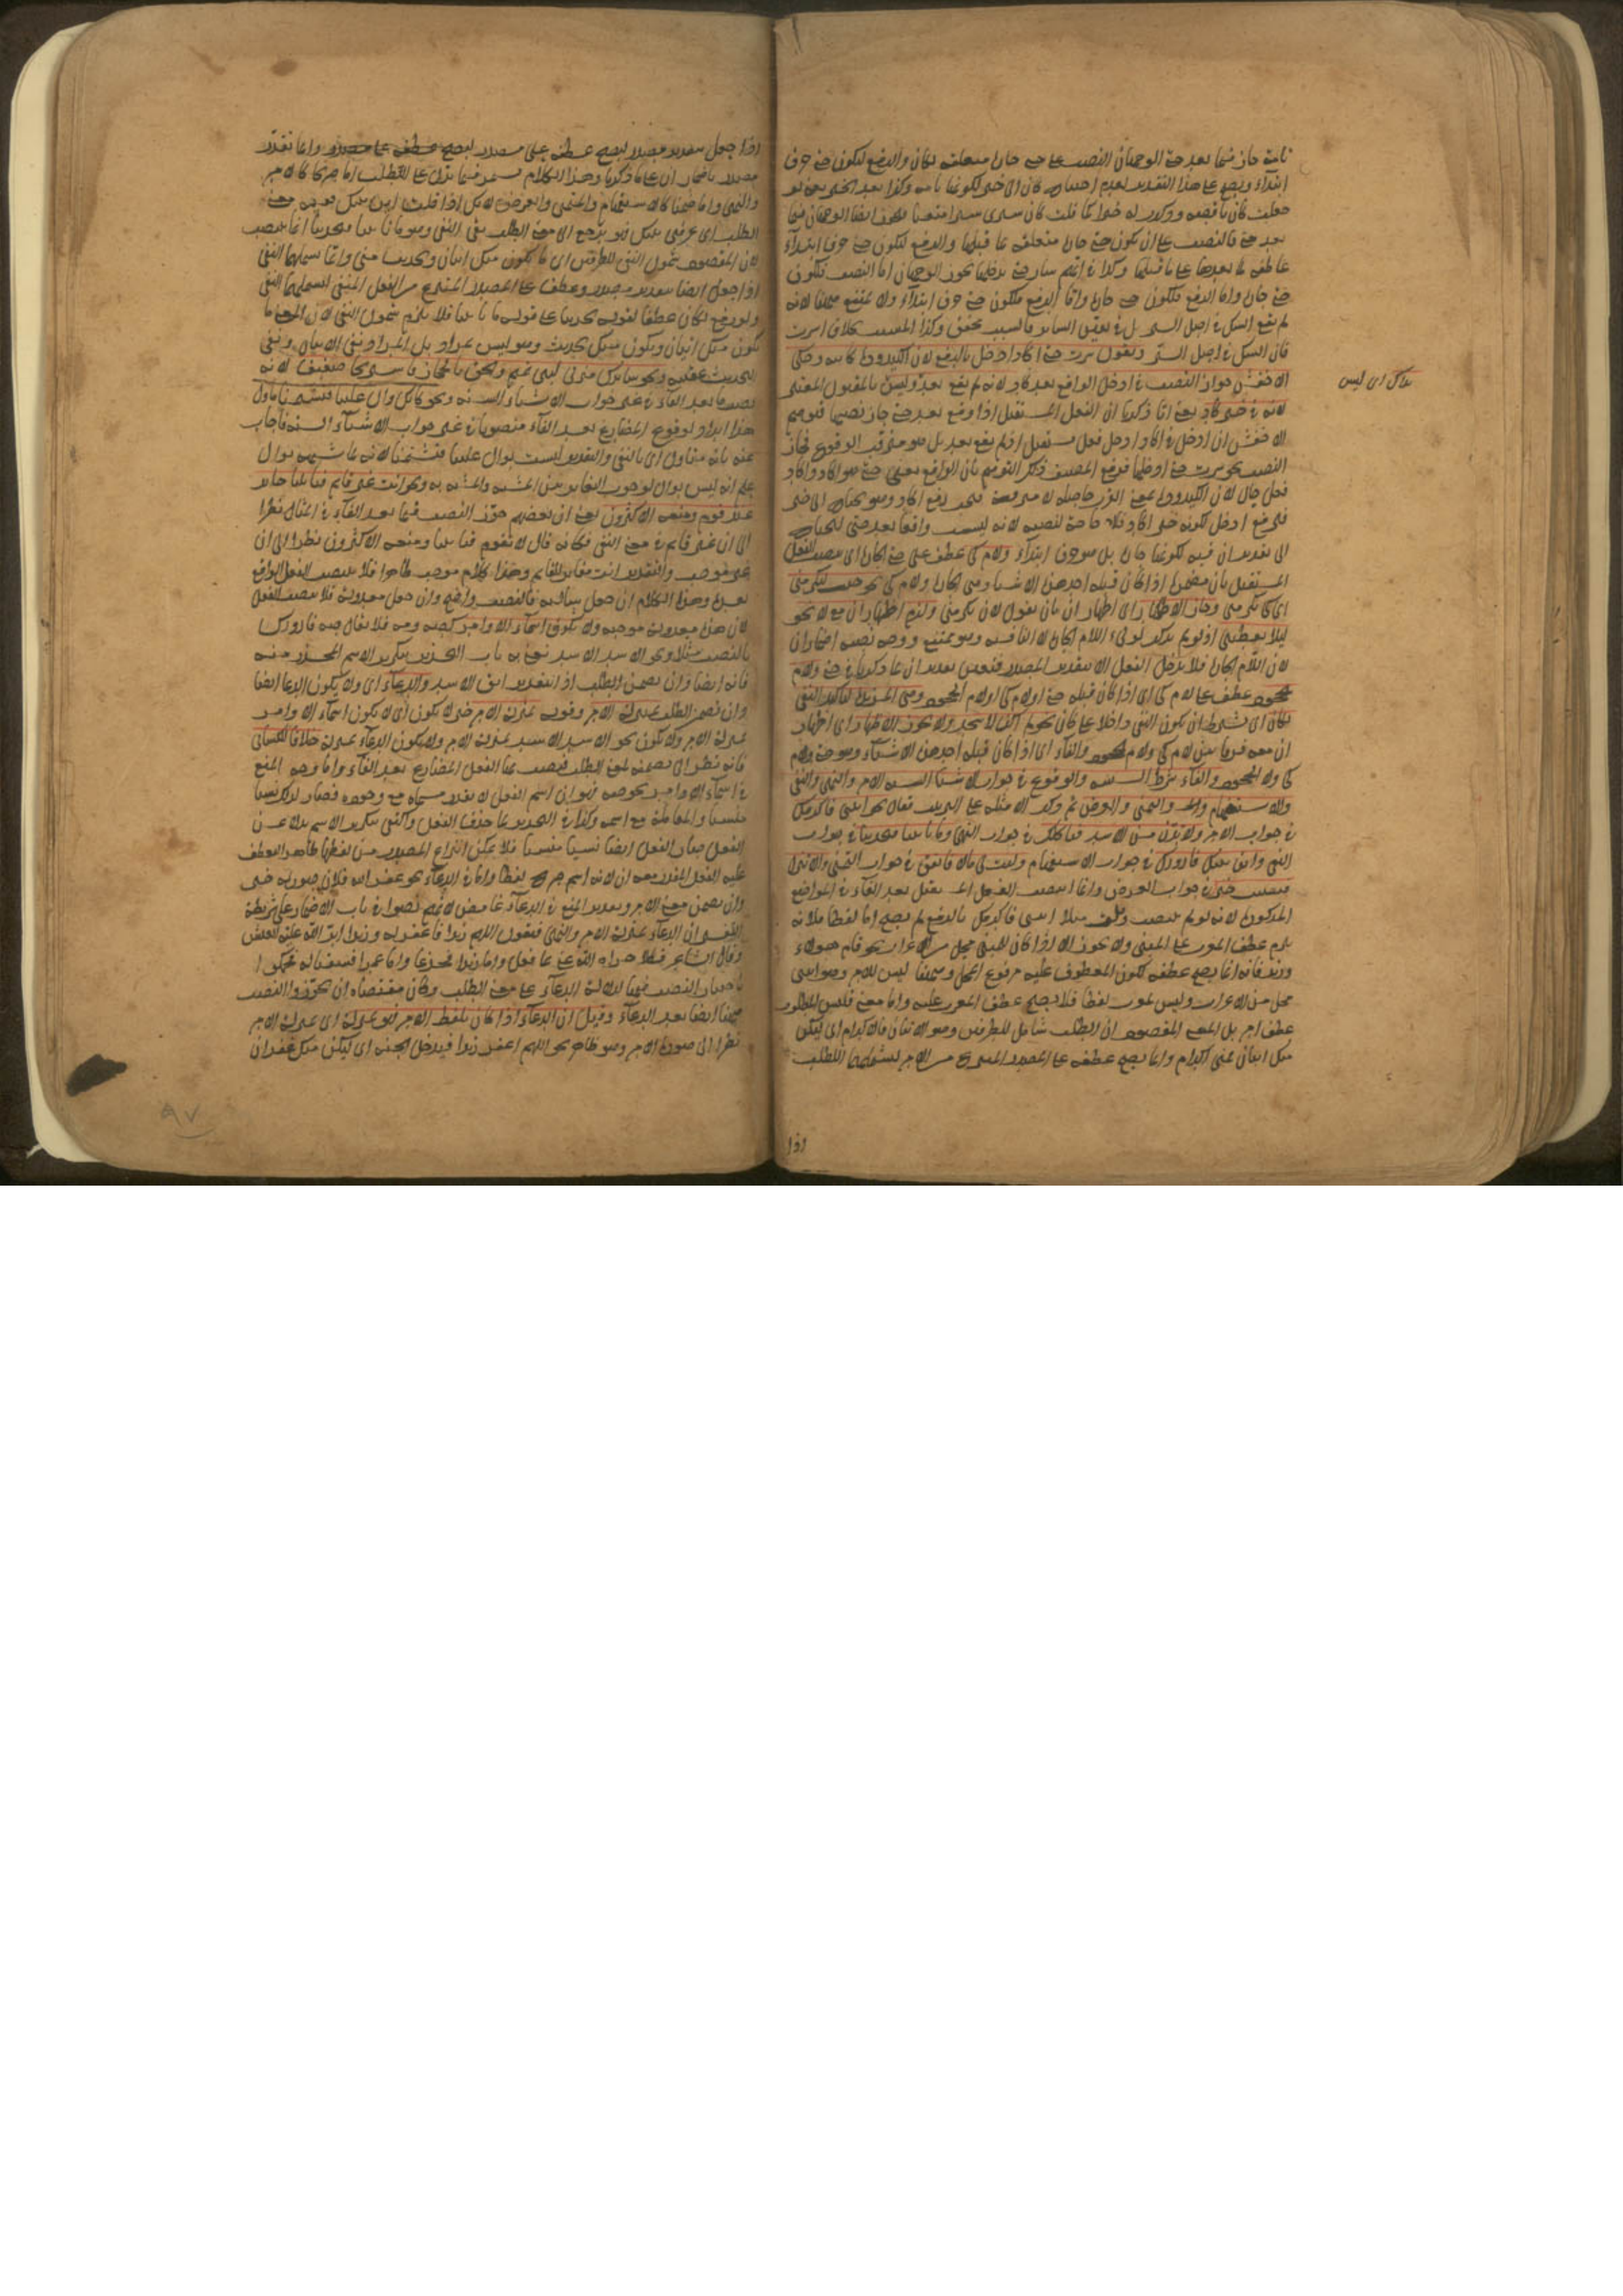 تامة جاز فيما بعد حتى الوجهان النصب على حتى جارة متعلقة بكان والرفع لتكون حتى حرف
ابتداء ويصح على هذا التقدير لعدم احتياج كان الى خبر لكونها تامة وكذا بعد الخبر يعنى لو
جعلت كان ناقصة وذكرت له خبرا كما قلت كان سيرى سيرا متعبا يجوز ايضا الوجهان فيما
بعد حتى فالنصب على ان يكون حتى جارة متعلقة بما قبلها والرفع لتكون حتى حرف ابتداء
عاطفة لما بعدها على ما قبلها وكذا في ايهم سار حتى يدخلها يجوز الوجهان اما النصب فلكون
حتى جارة واما الرفع فلكون حتى حرف ابتداء ولا يمتنع
لم يقع الشك في اصل السير بل في تعيين السائر فالسبب محقق وكذا المسبب بخلاف اسرت
فان الشك في اصل السير وتقول سرت حتى اكاد ادخل بالرفع لان الكيدودة كائنة وحكى
الاخفش جواز النصب في ادخل الواقع بعد كاد لانه لم يقع بعد وليس بالمقبول
لانه في خبر كاد يعنى انا ذكرنا ان الفعل المستقبل اذا وقع بعد حتى جاز نصبها فتوهم
الاخفش ان ادخل في اكاد ادخل فعل مستقبل اذ لم يقع بعد بل هو مترقب الوقوع فجاز
النصب نحو سرت حتى ادخلها فوقع المصنف ذلك التوهم بان الواقع بعد حتى هو اكاد واكاد
فعل حال لان الكيدودة بمعنى القرب حاصلة لا مترقبة
فلا حاجة لنصبه لانه ليس واقعا بعد حتى ليحتاج
الى تقدير ان فيه لكونها جارة بل هو حرف ابتداء ولام كى عطف على حتى الجارة اى ينصب الفعل
المستقبل بان مضمرة اذا كان قبله احد هذه الاشياء وهى الجارة ولام كى نحو جئت لتكرمنى
اى كى تكرمنى وجاز الاظهار اى اظهار ان بان تقول لان تكرمنى ولزم اظهار ان مع لا نحو
ليلا يعطينى اذ لو لم يذكر توالى اللام الجارة لا النافية وهو ممتنع ووجه نصبه اضمار ان
لان اللام الجارة فلا يدخل الفعل الا بتقدير المصدر فتعين تقدير ان على ما ذكرنا في حتى ولام
الجحود عطف على لام كى اى اذا كان قبله حتى او لام كى او لام الجحود وهى المزيدة لتاكيد النفى
لكان اى بشرط ان يكون النفى داخلا على كان نحو لم اكن لاسجد ولا يجوز الاظهار اى اظهار
ان معه فرقا بين لام كى ولام الجحود والفاء اى اذا كان قبله احد هذه الاشياء وهو حتى ولام
كى ولام الجحود والفاء بشرط السببية والوقوع في جواب الاشياء الستة الامر والنهى والنفى
والاستفهام والتمنى والعرض ثم ذكر الامثلة على الترتيب فقال نحو ايتنى فاكرمك
في جواب الامر ولا تدن من الاسد فياكلك في جواب النهى وما تاتينا فتحدثنا في جواب
النفى واين بيتك فازورك في جواب الاستفهام وليت لى مالا فانفق في جواب التمنى والا تنزل
فتصيب خيرا في جواب العرض وانما انتصب الفعل المستقبل بعد الفاء في المواضع
المذكورة لانه لو لم ينصب وقلت مثلا ايتنى فاكرمك بالرفع لم يصح اما لفظا فلانه
يلزم عطف المعرب على المبنى ولا يجوز الا اذا كان للمبنى محل من الاعراب نحو قام هؤلاء
وزيد فانه انما يصح عطفه لكون المعطوف عليه مرفوع المحل وههنا ليس للامر وهو ايتنى
محل من الاعراب وليس بمعرب لفظا فلا يصح عطف المعرب عليه واما معنى فليس المطلوب
عطف امر بل المعنى المقصود ان الطلب شامل للطرفين وهو الاتيان والاكرام اى ليكن
منك اتيان فمنى اكرام وانما يصح عطفه على المصدر المنتزع من الامر ليشملهما الطلب
اذا
بذاك اى ليس
اذا جعل بتقدير مصدر ليصح عطفه على مصدر وانما تقدر
مصدر باضمار ان على ما ذكرنا وهذا الكلام مستمر فيما يدل على الطلب اما صريحا كالامر
والنهى واما ضمنا كالاستفهام والتمنى والعرض لانك اذا قلت اين بيتك يفيد معنى
الطلب اى عرفنى بيتك فهو يرجع الى معنى الطلب بقى النفى وهو ما تاتينا فتحدثنا انما نصب
لان المقصود شمول النفى للطرفين اى لا يكون منك اتيان وتحديث منى وانما يشملهما النفى
اذا جعل ايضا بتقدير مصدر وعطف على المصدر المنتزع من الفعل المنفى ليشملهما النفى
ولو رفع لكان عطفا لقوله تحدثنا على قوله ما تاتينا فلا يلزم شمول النفى لان المعنى ما
يكون منك اتيان ويكون منك تحديث وهو ليس بمراد بل المراد نفى الاتيان ونفى
التحديث عقيبه ونحو ساترك منزلى لبنى تميم والحق بالحجاز فاستريحا ضعيف لانه
نصب ما بعد الفاء في غير جواب الاشياء الستة ونحو كانك وال علينا فتشتمنا ماول
هذا ايراد لوقوع المضارع بعد الفاء منصوبا في غير جواب الاشياء الستة فاجاب
عنه بانه متاول اى بالنفى والتقدير لست بوال علينا فتشتمنا لانه لما شبهه بوال
علم انه ليس بوال لوجوب التغاير بين المشبه والمشبه به ونحو انت غير قائم فتاتينا جائز
عند قوم ومنعه الاكثرون يعنى ان بعضهم جوز النصب فيما بعد الفاء في المثال نظرا
الى ان غير قائم في معنى النفى فكانه قال لا تقوم فتاتينا ومنعه الاكثرون نظرا الى ان
غير موجب والتقدير انت مغاير للقائم وهذا كلام موجب ظاهرا فلا ينصب الفعل الواقع
بعده وهذا الكلام ان جعل سالبة فالنصب واضح وان جعل معدولة فلا ينصب الفعل
لان هذه معدولة موجبة ولا يكون اسماء الاوامر كصه ومه فلا يقال صه فازورك
بالنصب مثلا ونحو الاسد الاسد يعنى به باب التحذير بتكرير الاسم المحذر منه
فانه ايضا وان تضمن الطلب اذ التقدير اتق الاسد والدعاء اى ولا يكون الدعا ايضا
وان تضمن الطلب بمنزلة الامر وقوله بمنزلة الامر خبر لا يكون اى لا يكون اسماء الاوامر
بمنزلة الامر ولا يكون نحو الاسد الاسد بمنزلة الامر ولا يكون الدعاء بمنزلة خلافا للكسائى
فانه نظر الى تضمنه لمعنى الطلب فنصب بها الفعل المضارع بعد الفاء واما وجه المنع
في اسماء الاوامر بخصوصه فهو ان اسم الفعل لا يقدر مسماه مع وجوده فصار لذلك نسيا
منسيا والمعاملة مع اسمه وكذا في التحذير لما حذف الفعل واكتفى بتكرير الاسم بدلا عن
الفعل صار الفعل ايضا نسيا منسيا فلا يمكن انتزاع المصدر من لفظها ظاهرا ليعطف
عليه الفعل المقدر معه ان لانه اسم صريح لفظا واما في الدعاء نحو غفر الله فلان صورته خبر
وان تضمن معنى الامر وتقدير المنع في الدعاء غامض لانهم نصوا في باب الاضمار على شريطة
التفسير ان الدعاء بمنزلة الامر والنهى فتقول اللهم زيدا فاغفر له وزيدا امر الله عليه العيش
وقال الشاعر فكلا جزاه الله عنى بما فعل واما زيدا فجدعا واما عمرا فسقيا له فحكموا
باختيار النصب فيها لدلالة الدعاء على معنى الطلب وكان مقتضاه ان يجوزوا النصب
ههنا ايضا بعد الدعاء وقيل ان الدعاء اذا كان بلفظ الامر فهو بمنزلة اى بمنزلة الامر
نظرا الى صورة الامر وهو ظاهر نحو اللهم اغفر زيدا فيدخل الجنة اى ليكن منك غفران
٩٧